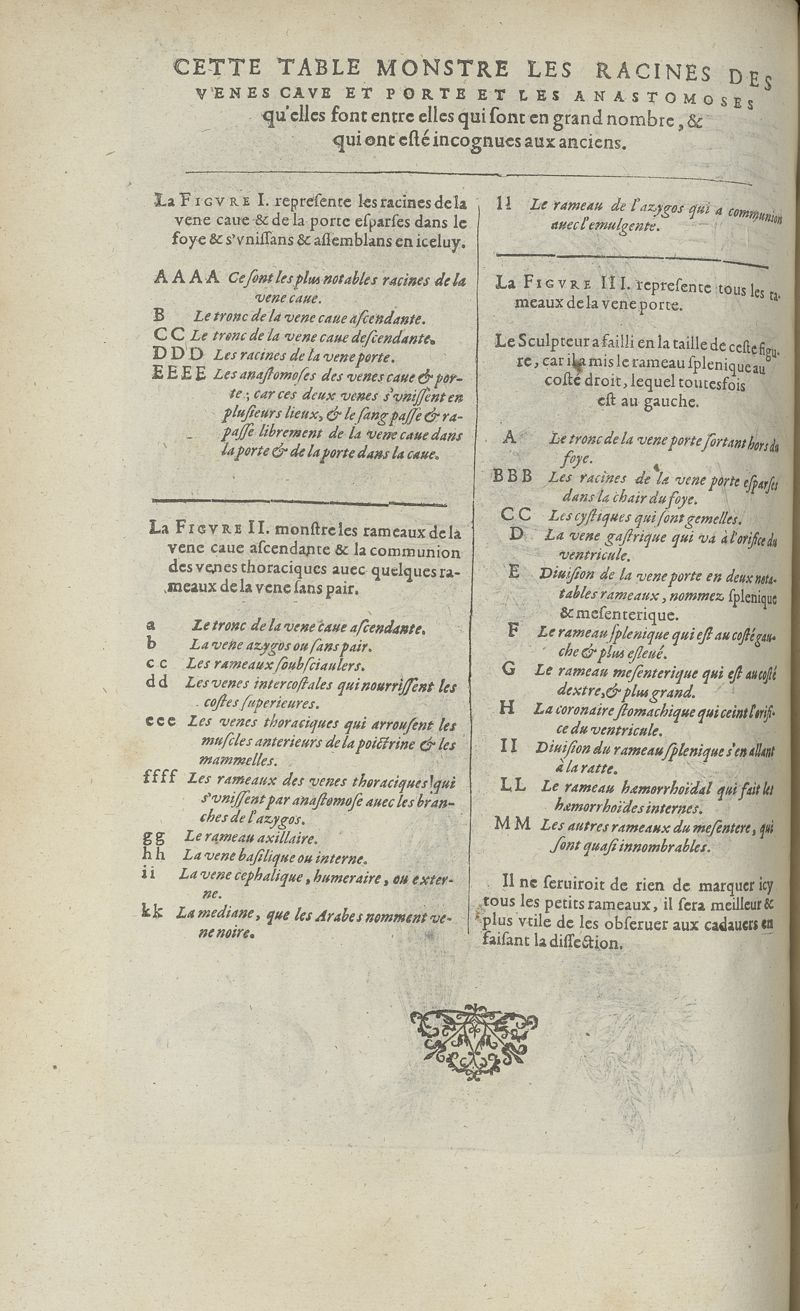 CETTE TABLE MONSTRE LES RACINES DES
VENES CAVE ET PORTE ET LES ANASTOMOSES
qu'elles font entre elles qui ſont en grand nombre, &
qui ont eſté incognues aux anciens.
La FIGVRE I. repreſente les racines de la
vene caue & de la porte eſparſes dans le
foye & s'vniſſans & aſſemblans en iceluy.
A A A A Ce ſont les plus notables racines de la
vene caue.
B Le tronc de la vene caue aſcendante.
C C Le tronc de la vene caue deſcendante.
D D D Les racines de la vene porte.
E E E E Les anaſtomoſes des venes caue & por-
te ; car ces deux venes s'vniſſent en
pluſieurs lieux, & le ſang paſſe & ra-
paſſe librement de la vene caue dans
la porte & de la porte dans la caue.
La FIGVRE II. monſtre les rameaux de la
vene caue aſcendante & la communion
des venes thoraciques auec quelques ra-
meaux de la vene ſans pair.
a Le tronc de la vene caue aſcendante.
b La vene azygos ou ſans pair.
c c Les rameaux ſoubſclaulers.
d d Les venes intercoſtales qui nourriſſent les
coſtes ſuperieures.
e e e Les venes thoraciques qui arrouſent les
muſcles anterieurs de la poictrine & les
mammelles.
f f f f Les rameaux des venes thoraciques qui
s'vniſſent par anaſtomoſe auec les bran-
ches de l'azygos.
g g Le rameau axillaire.
h h La vene baſilique ou interne.
i i La vene cephalique, humeraire, ou exter-
ne.
k k La mediane, que les Arabes nomment ve-
ne noire.
l l Le rameau de l'azygos qui a communion
auec l'emulgente.
La FIGVRE III. repreſente tous les ra-
meaux de la vene porte.
Le Sculpteur a failli en la taille de ceſte figu-
re, car il a mis le rameau ſplenique au
coſté droit, lequel toutesfois
eſt au gauche.
A Le tronc de la vene porte ſortant hors du
foye.
B B B Les racines de la vene porte eſparſes
dans la chair du foye.
C C Les cyſtiques qui ſont gemelles.
D La vene gaſtrique qui va à l'orifice du
ventricule.
E Diuiſion de la vene porte en deux nota-
tables rameaux, nommez ſplenique
& meſenterique.
F Le rameau ſplenique qui eſt au coſté gau-
che & plus eſleué.
G Le rameau meſenterique qui eſt au coſté
dextre, & plus grand.
H La coronaire ſtomachique qui ceint l'orifi-
ce du ventricule.
I I Diuiſion du rameau ſplenique s'en allant
à la ratte.
L L Le rameau hæmorrhoïdal qui fait les
hæmorrhoïdes internes.
M M Les autres rameaux du meſentere, qui
ſont quaſi innombrables.
Il ne ſeruiroit de rien de marquer icy
tous les petits rameaux, il ſera meilleur &
plus vtile de les obſeruer aux cadauers en
faiſant la diſſection.